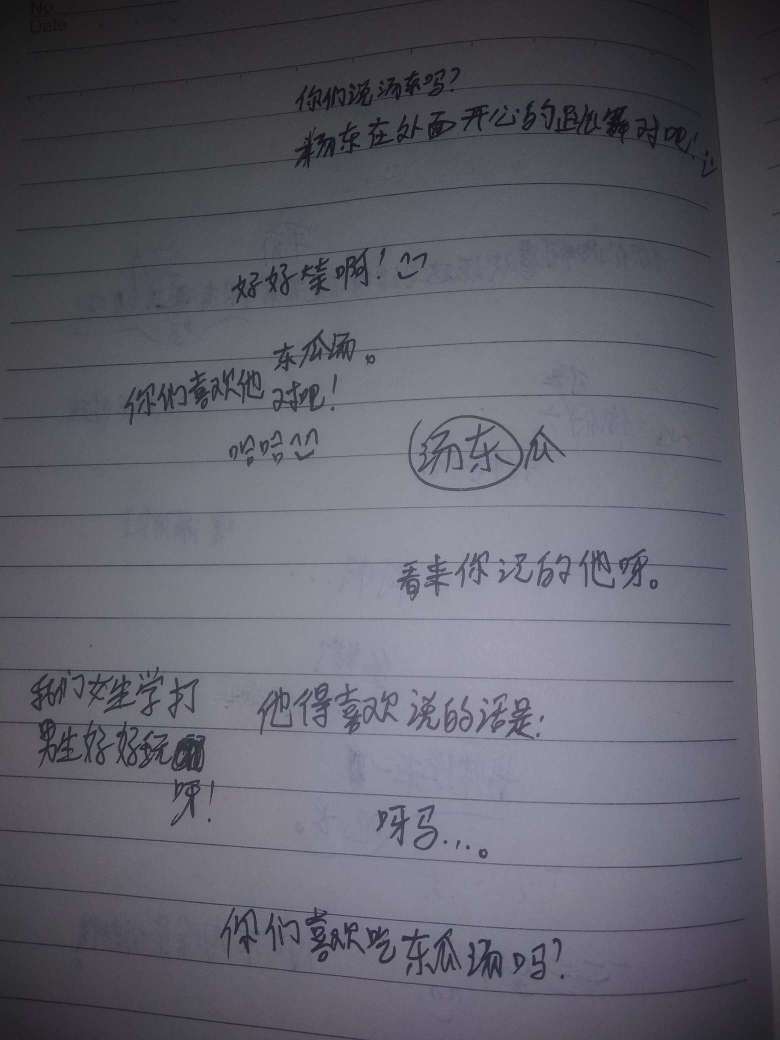 No
Date
你们说汤东吗?
汤东在外面开公的 舞对吧!
好好笑啊!
东瓜汤。
你们喜欢他对吧!
哈哈
汤东瓜
看来你说的他呀。
我们女生学打
男生好好玩
呀!
他得喜欢说的话是:
呀马...。
你们喜欢吃东瓜汤吗?